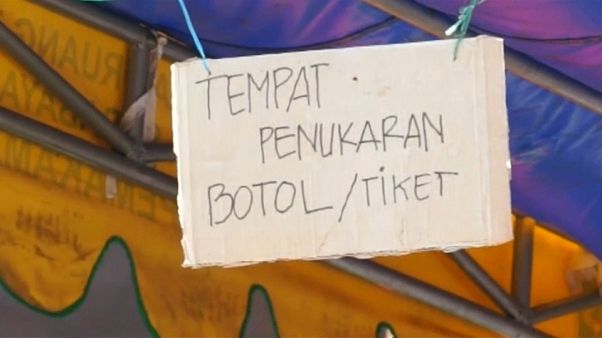 TEMPAT
PENUKARAN
BOTOL/TIKET